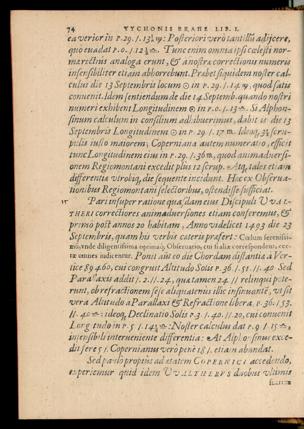 74 TYCHONIS BRAHE LIB. I.
ea verior in P. 29. I. 13½ ♍: Posteriori verò tantillũ adijcere,
quo euadat P. 0. I. 12¾ ♎. Tunc enim omnia ipsi cœlesti nor-
mæ rectius analoga erunt, & à nostra correctioni numeris
insensibiliter etiam abhorrebunt. Præbet siquidem noster cal-
culus die 13 Septembris locum ☉ in P. 29. I. ♍, quod satis
conuenit. Idem sentiendum de die 14 Septemb. quando nostri
numeri exhibent Longitudinem ☉ in P. 0. I. 13 ♎. Si Alphon-
sinum calculum in consilium adhibuerimus, dabit is die 13
Septembris Longitudinem ☉ in P. 29. I. 17 ♍. Ideoq́;
pulis iusto maiorem; Copernicana autem numeratio, efficit
tunc Longitudinem eius in P. 29. I. 36 ♍, quod animaduersi-
onem Regiomontani excedit plus 23 scrup. Atq́; tales etiam
differentiæ vtrobiq́; die sequente incidunt. Hoc ex Obserua-
tionibus Regiomontani selectioribus, ostendisse sufficiat.
15 Pari insuper ratione quasdam eius Discipuli UVAL-
THERI correctiores animaduersiones etiam conferemus, &
primò post annos 20 habitam, Anno videlicet 1493 die 23
Septembris, quam his verbis cæteris præfert: Cœlum serenissi-
mo, vnde diligentissima
omnes indicente. Ponit aũt eo die Chordam distantiæ à Ver-
tice 89460, cui congruit Altitudo Solis P. 36. I. 51. II. 40. Sed
Parallaxis addit I. 2. II. 24, quatamen 24. II relinqui pote-
runt, ob refractionem sese aliquatenus illic insinuantẽ, vt sit
vera Altitudo à Parallaxi & Refractione libera, P. 36. I. 53.
II. 40 ideoq́; Declinatio Solis P. 3. I. 40. II. 20, cui conuenit
Longitudo in P. 9. I. 14½ ♎: Noster calculus dat P. 9. I. 15 ♎,
insensibili interueniente differentia: At Alphonsinus exce-
dit fere 5 I. Copernicanus verò penè 18 I. etiam abundat.
Sed paulò propius ad ætatem COPERNICI accedendo,
experiemur quid idem UVALTHERUS duobus vltimis